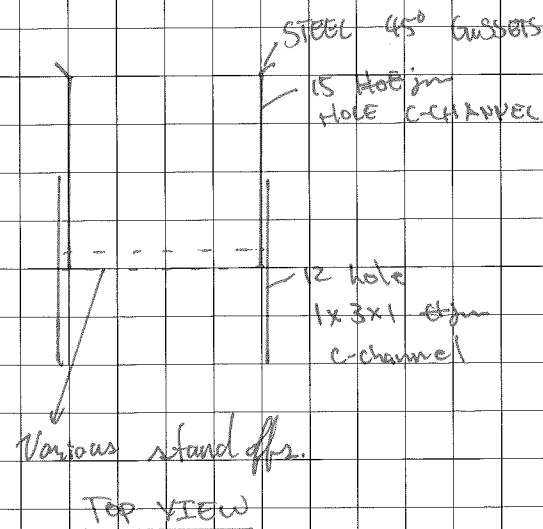 STEEL 45° GUSSETS
15 HOLE
HOLE C-CHANNEL
12 hole
1x3x1
c-channel
Various standoffs.
TOP VIEW